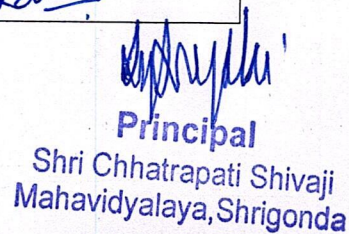 Principal
Shri Chhatrapati Shivaji
Mahavidyalaya,Shrigonda